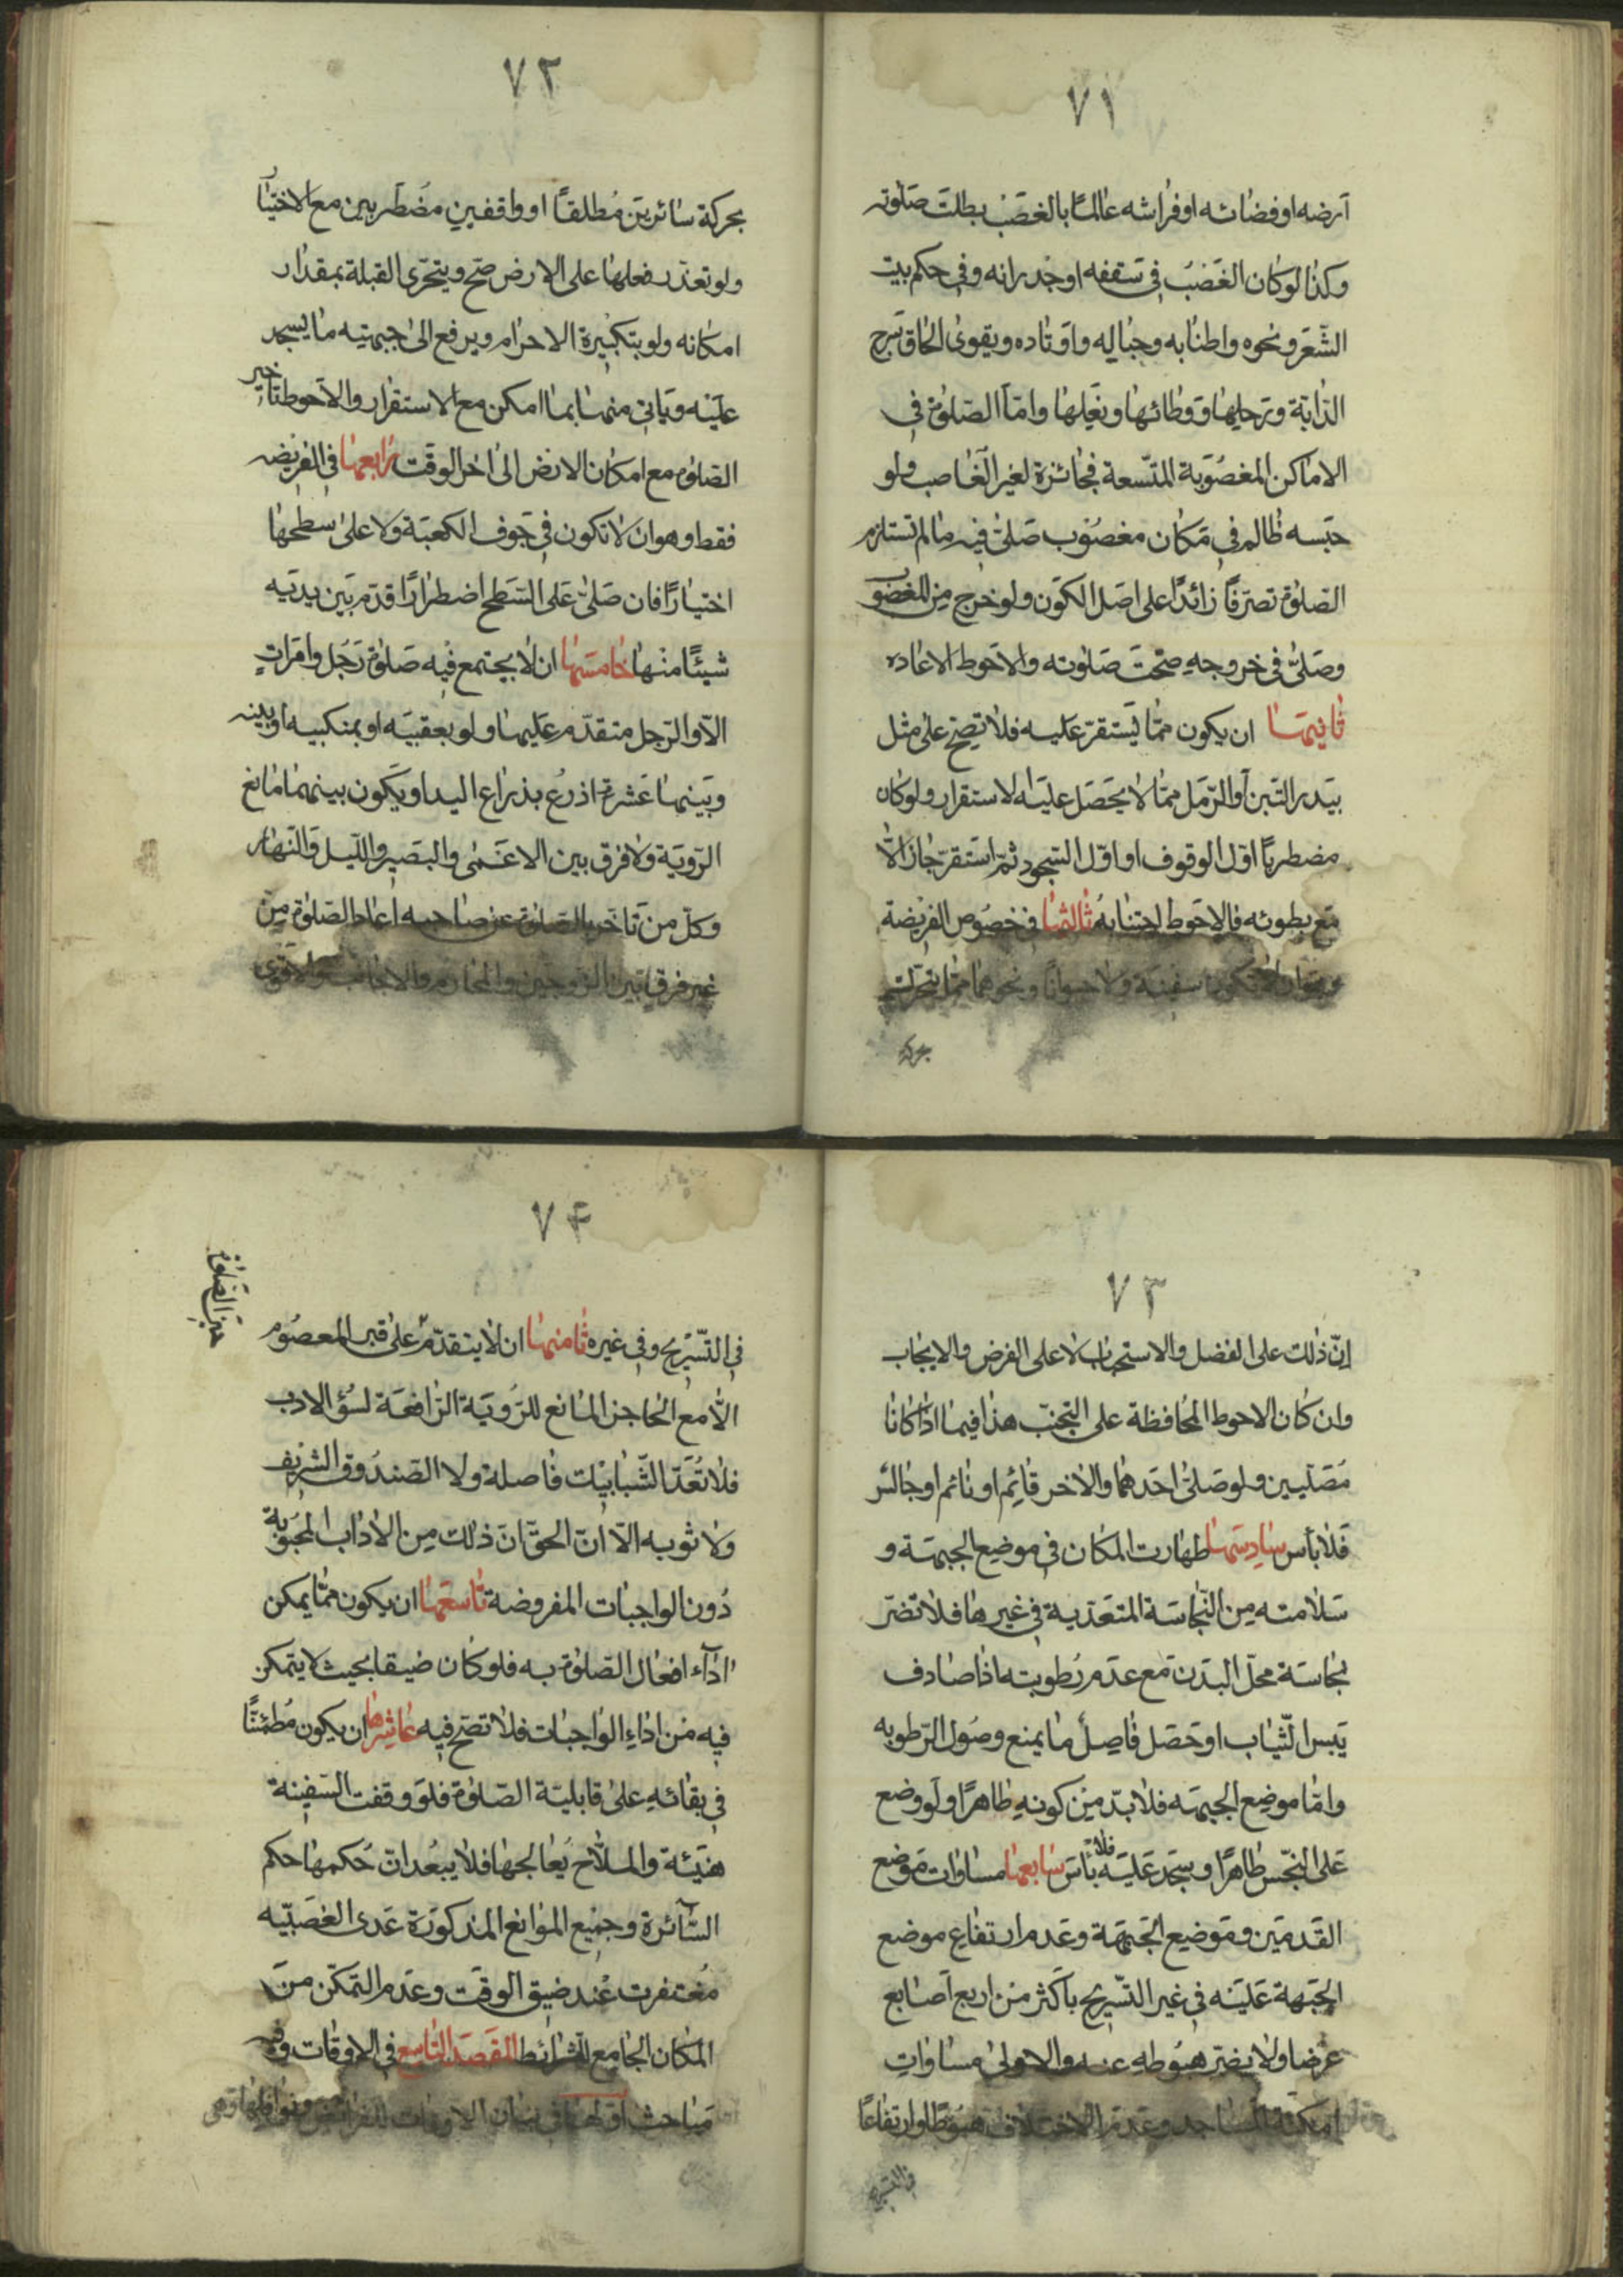 ٧١
ارضه او فضائه او فراشه عالمًا بالغصب بطلت صلوته
وكذا لو كان الغصب في سقفه او جدرانه وفي حكم بيت
الشعر ونحوه واطنابه وحباله واوتاده ويقوى الحاق سرج
الدابة ورحلها ووطائها ونعلها واما الصلوة في
الاماكن المغصوبة المتسعة فجائزة لغير الغاصب ولو
حبسه ظالم في مكان مغصوب صلى فيه ما لم تستلزم
الصلوة تصرفًا زائدًا على اصل الكون ولو خرج من المغصوب
وصلى في خروجه صحت صلوته والاحوط الاعاده
ثانيتها ان يكون مما يستقر عليه فلا تصح على مثل
بيدر التبن او الرمل مما لا يحصل عليه الاستقرار ولو كان
مضطربًا اول الوقوف او اول السجود ثم استقر جاز الا
مع بطوئه فالاحوط اجتنابه ثالثها في خصوص الفريضة
وهو ان لا تكون سفينة ولا حيوانًا ونحوهما مما يتحرك
بحركة
٧٢
بحركة سائرين مطلقًا او واقفين مضطربين مع الاختيار
ولو تعذر فعلها على الارض صح ويتحرى القبلة بمقدار
امكانه ولو بتكبيرة الاحرام ويرفع الى جبهتيه ما يسجد
عليه وياتي منها بما امكن مع الاستقرار والاحوط تاخير
الصلوة مع امكان الارض الى اخر الوقت رابعها في الفريضه
فقط وهو ان لا تكون في جوف الكعبة ولا على سطحها
اختيارًا فان صلى على السطح اضطرارًا قدم بين يديه
شيئًا منها خامستها ان لا يجتمع فيه صلوة رجل وامرات
الا والرجل متقدم عليها ولو بعقبيه او بمنكبيه او بينه
وبينها عشرة اذرع بذراع اليد او يكون بينهما مانع
الروية ولا فرق بين الاعمى والبصير والليل والنهار
وكل من تاخر بالصلوة عن صاحبه اعاد الصلوة من
غير فرق بين الزوجين والمحارم والاجانب والاقوى
٧٣
ان ذلك على الفضل والاستحباب لا على الفرض والايجاب
وان كان الاحوط المحافظة على التجنب هذا فيما اذا كانا
مصليين ولو صلى احدهما والاخر قائم او نائم او جالس
فلا بأس سادستها طهارت المكان في موضع الجبهة و
سلامته من النجاسة المتعدية في غيرها فلا تضر
نجاسة محل البدن مع عدم رطوبته اذا صادف
يبس الثياب او حصل فاصل ما يمنع وصول الرطوبه
واما موضع الجبهة فلا بد من كونه طاهرًا ولو وضع
على النجس طاهرًا وسجد عليه فلا باس سابعها مساوات موضع
القدمين وموضع الجبهة وعدم ارتفاع موضع
الجبهة عليه في غير التسريح باكثر من اربع اصابع
عرضا ولا يضر هبوطه عنه والاولى مساوات
امكنة المساجد وعدم الاختلاف هبوطًا وارتفاعًا
في التسريح
٧٤
في التسريح وفي غيره ثامنها ان لا يتقدم على قبر المعصوم
الا مع الحاجز المانع للروية الرافعة لسؤ الادب
فلا تعد الشبابيك فاصلة ولا الصندوق الشريف
ولا ثوبه الا ان الحق ان ذلك من الاداب المحبوبة
دون الواجبات المفروضة تاسعها ان يكون مما يمكن
اداء افعال الصلوة به فلو كان ضيقا بحيث لا يتمكن
فيه من اداء الواجبات فلا تصح فيه عاشرها ان يكون مطمئنًا
في بقائه على قابلية الصلوة فلو وقفت السفينة
هنيئة والملاح يعالجها فلا يبعد ان حكمها حكم
السائرة وجميع الموانع المذكورة عدى الغصبيه
مغتفرت عند ضيق الوقت وعدم التمكن من
المكان الجامع للشرائط المقصد التاسع في الاوقات وفيه
مباحث اولها في بيان الاوقات للفرائض ونوافلها وهي